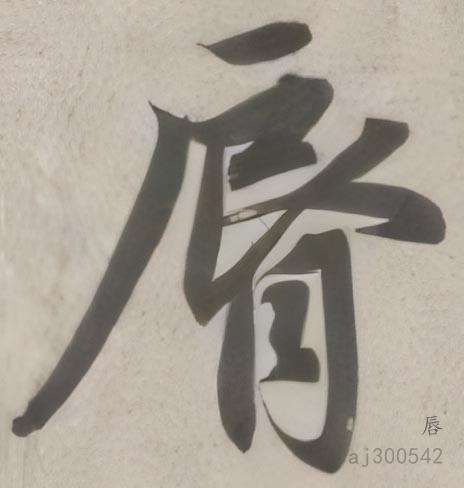 脣
唇
aj300542